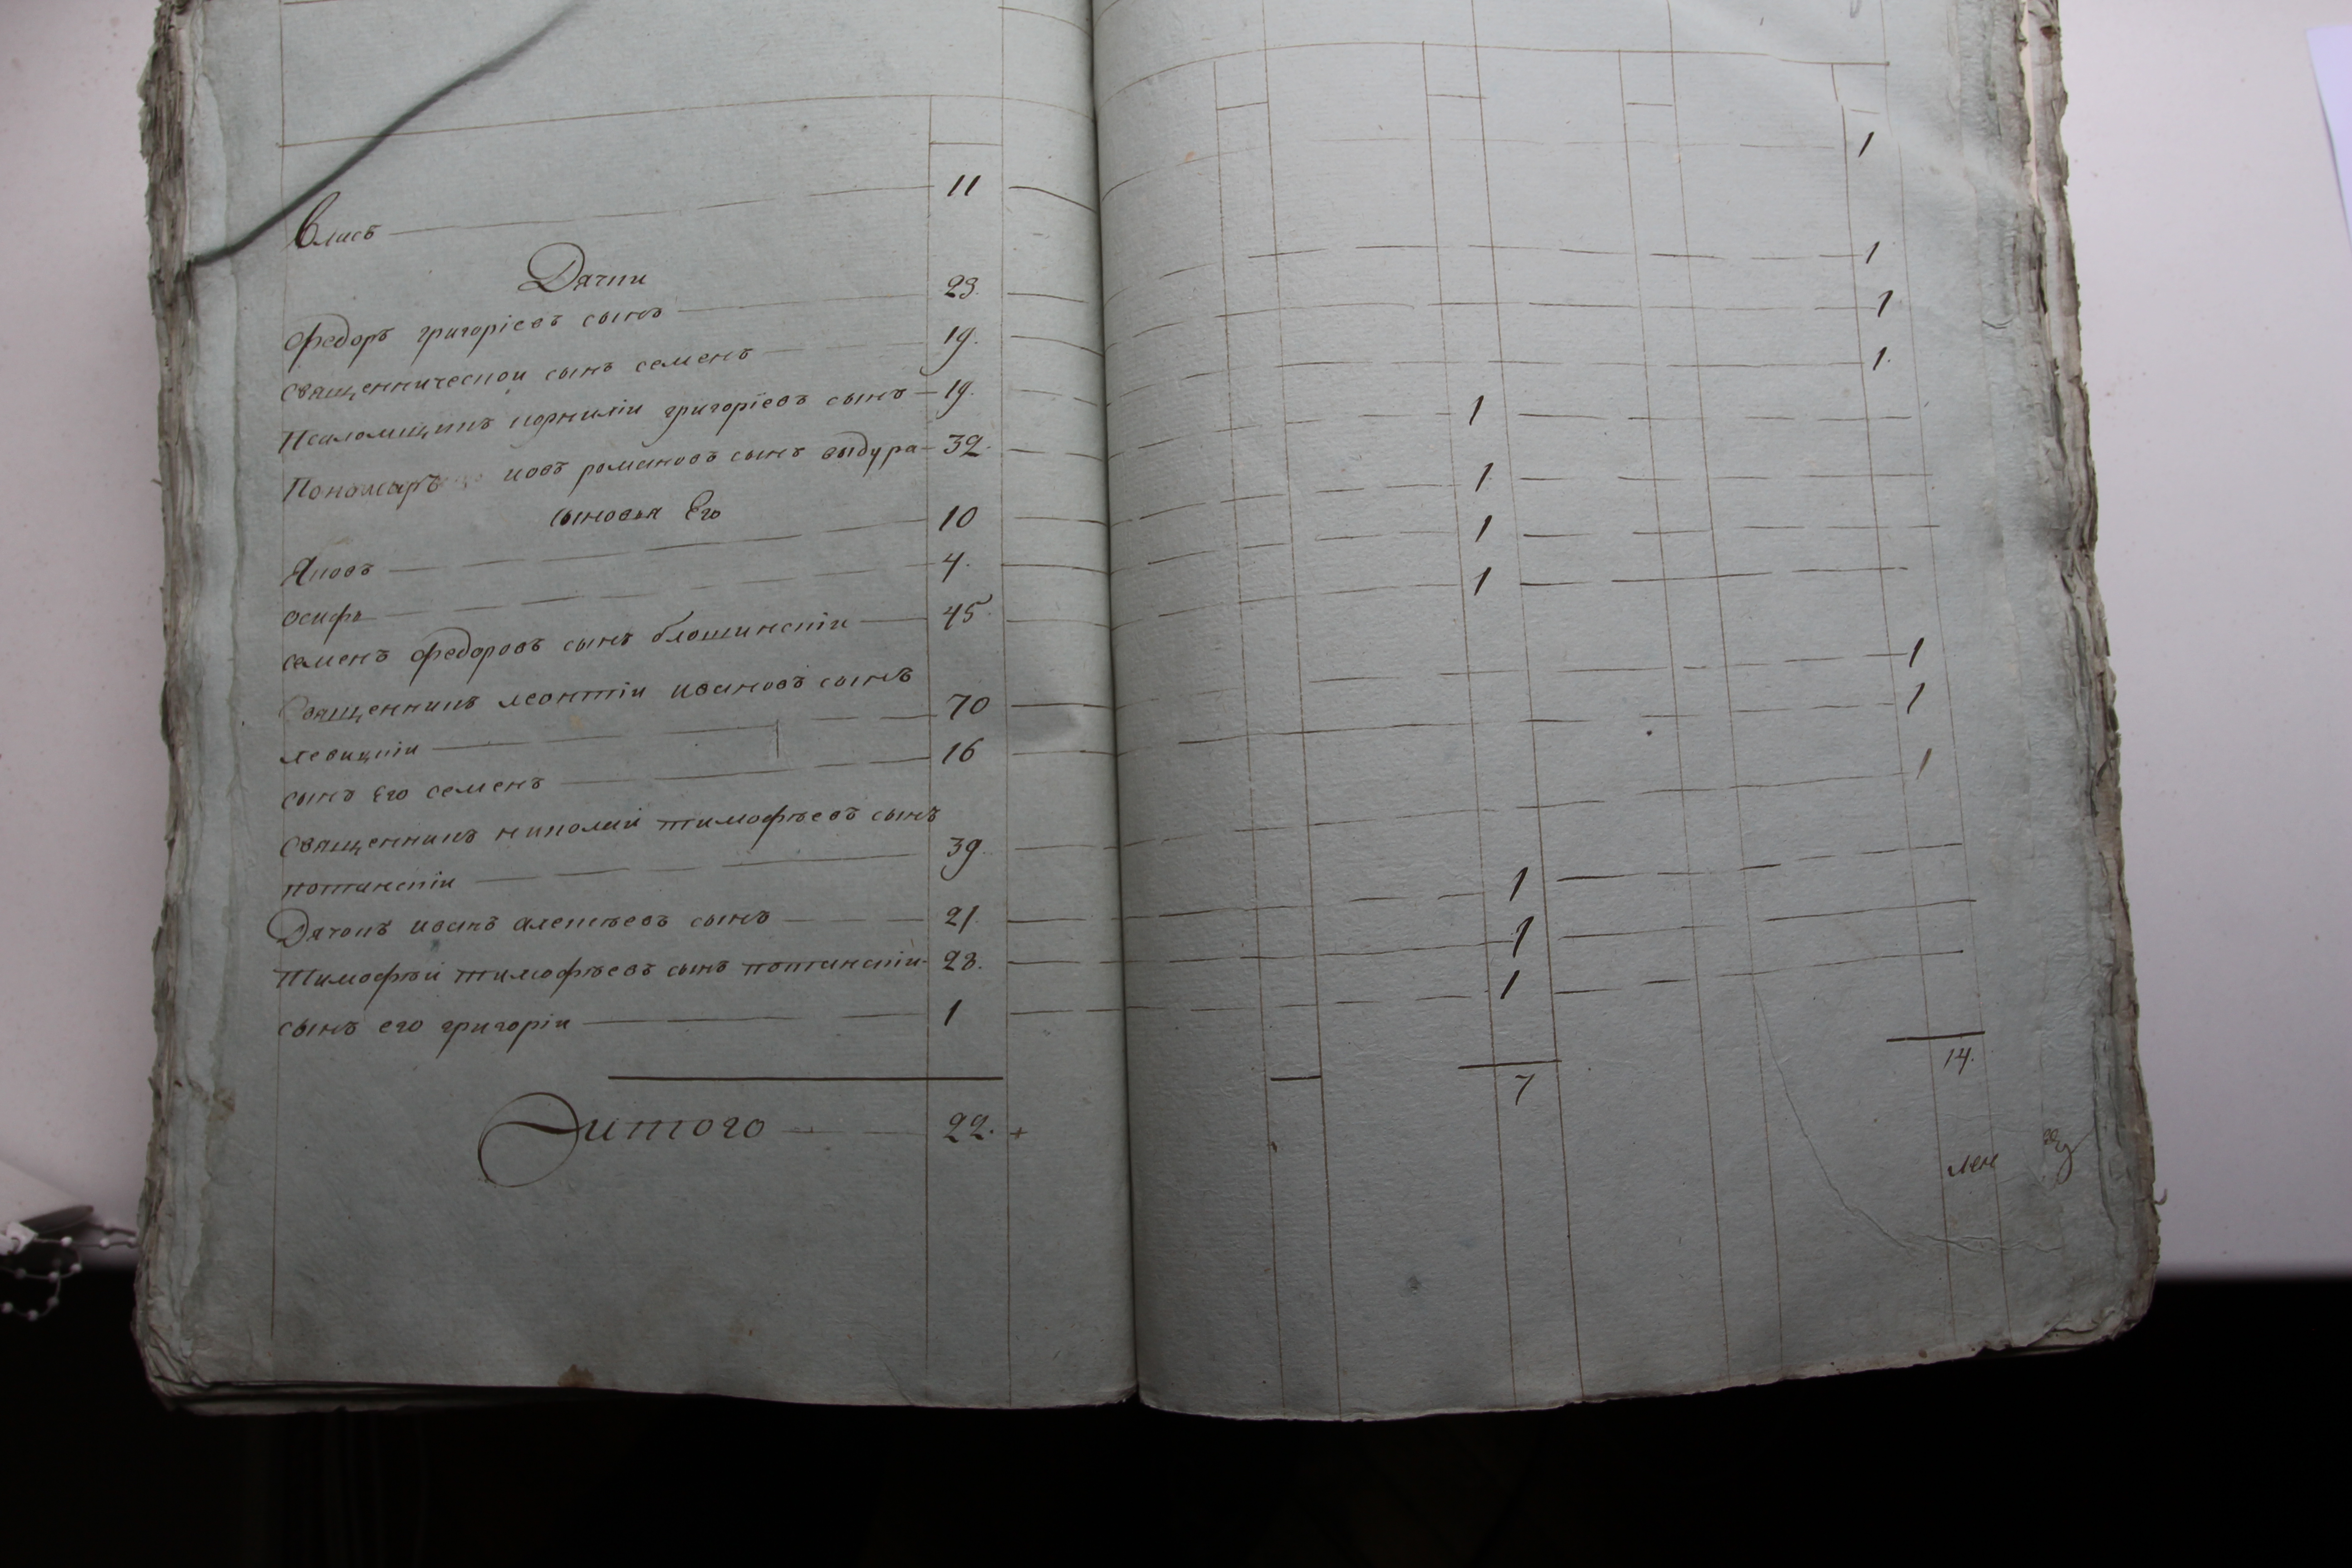 Влисъ 11 1
Дячки
Федоръ григоріевъ сынъ 23. 1
священническои сынъ семенъ 19. 1
Псаломщикъ корниліи григоріевъ сынъ 19. 1.
Пономаръ иовъ романовъ сынъ выдура 32. 1
сыновья Его
Яковъ 10 1
осифъ 4. 1
семенъ федоровъ сынъ блошинскіи 45. 1
Священникъ леонтіи ивановъ сынъ
левицкіи 70 1
сынъ Его семенъ 16 1
священникъ николаи тимофѣевъ сынъ
потанскіи 39. 1
Дячокъ иванъ алексѣевъ сынъ 21. 1
Тимофѣи тимофѣевъ сынъ потанскіи 28. 1
сынъ его григоріи 1 1
Итого 22. 7 14.